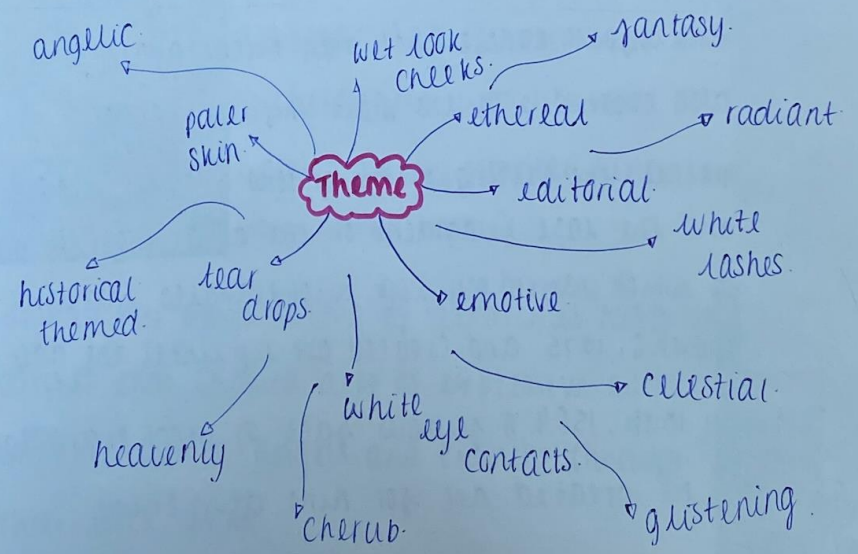 angelic.
wet look
cheeks.
fantasy.
paler
skin.
ethereal
radiant.
Theme
editorial.
white
lashes.
historical
themed.
tear
drops.
emotive.
white
eye
contacts.
celestial.
heavenly
cherub.
glistening.